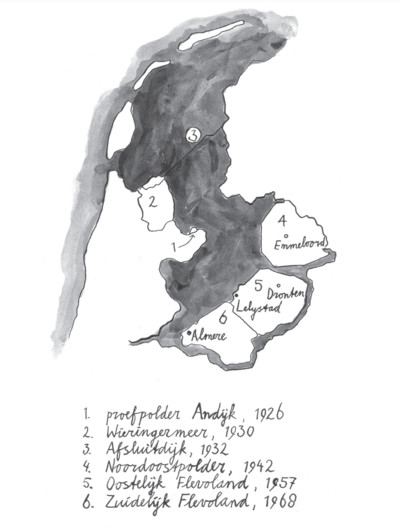 3
2
4
Emmeloord
1
5
Dronten
Lelystad
6
Almere
1. proefpolder Andijk, 1926
2. Wieringermeer, 1930
3. Afsluitdijk, 1932
4. Noordoostpolder, 1942
5. Oostelijk Flevoland, 1957
6. Zuidelijk Flevoland, 1968